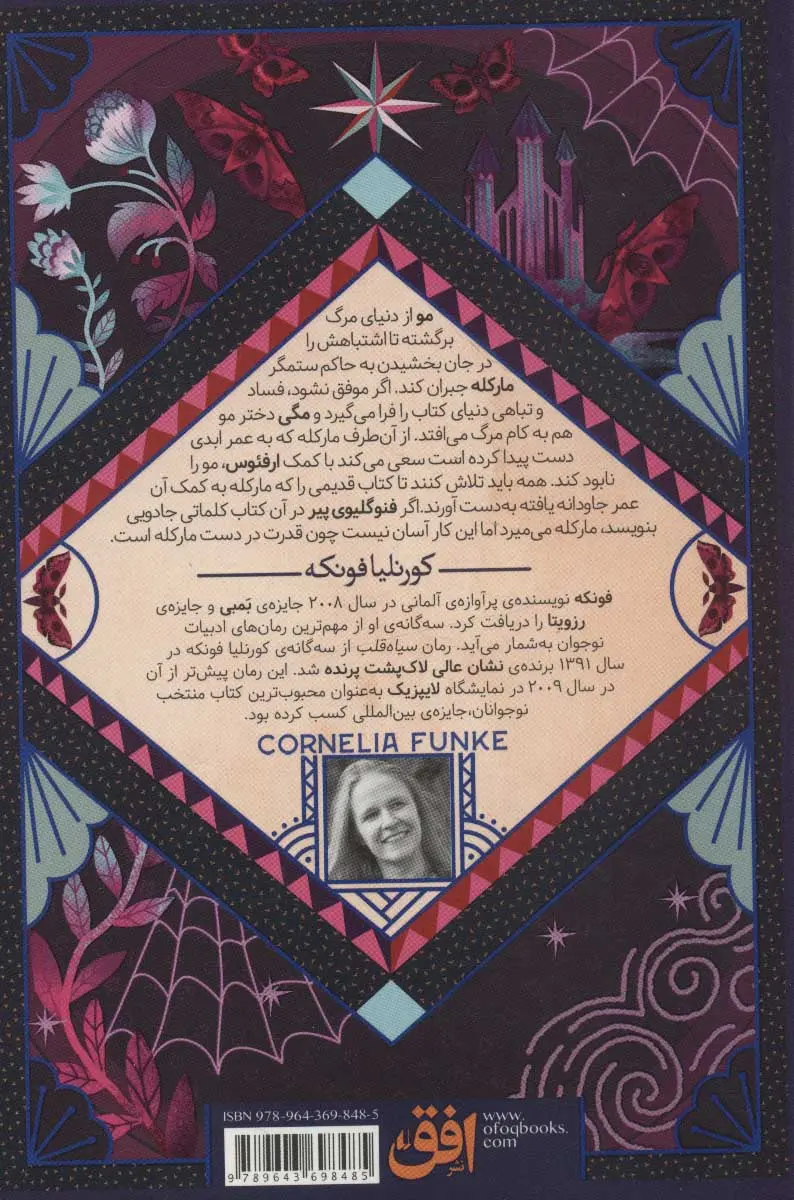 مو از دنیای مرگ
برگشته تا اشتباهش را
در جان بخشیدن به حاکم ستمگر
مارکله جبران کند. اگر موفق نشود، فساد
و تباهی دنیای کتاب را فرا می‌گیرد و مگی دختر مو
هم به کام مرگ می‌افتد. از آن‌طرف مارکله که به عمر ابدی
دست پیدا کرده است سعی می‌کند با کمک ارفئوس، مو را
نابود کند. همه باید تلاش کنند تا کتاب قدیمی را که مارکله به کمک آن
عمر جاودانه یافته به‌دست آورند. اگر فنوگلیوی پیر در آن کتاب کلماتی جادویی
بنویسد، مارکله می‌میرد اما این کار آسان نیست چون قدرت در دست مارکله است.
کورنلیا فونکه
فونکه نویسنده‌ی پرآوازه‌ی آلمانی در سال ۲۰۰۸ جایزه‌ی بَمبی و جایزه‌ی
رزویتا را دریافت کرد. سه‌گانه‌ی او از مهم‌ترین رمان‌های ادبیات
نوجوان به‌شمار می‌آید. رمان سیاه‌قلب از سه‌گانه‌ی کورنلیا فونکه در
سال ۱۳۹۱ برنده‌ی نشان عالی لاک‌پشت پرنده شد. این رمان پیش‌تر از آن
در سال ۲۰۰۹ در نمایشگاه لایپزیک به‌عنوان محبوب‌ترین کتاب منتخب
نوجوانان، جایزه‌ی بین‌المللی کسب کرده بود.
CORNELIA FUNKE
ISBN 978-964-369-848-5
9 789643 698485
نشر افق
www.
ofoqbooks.
com